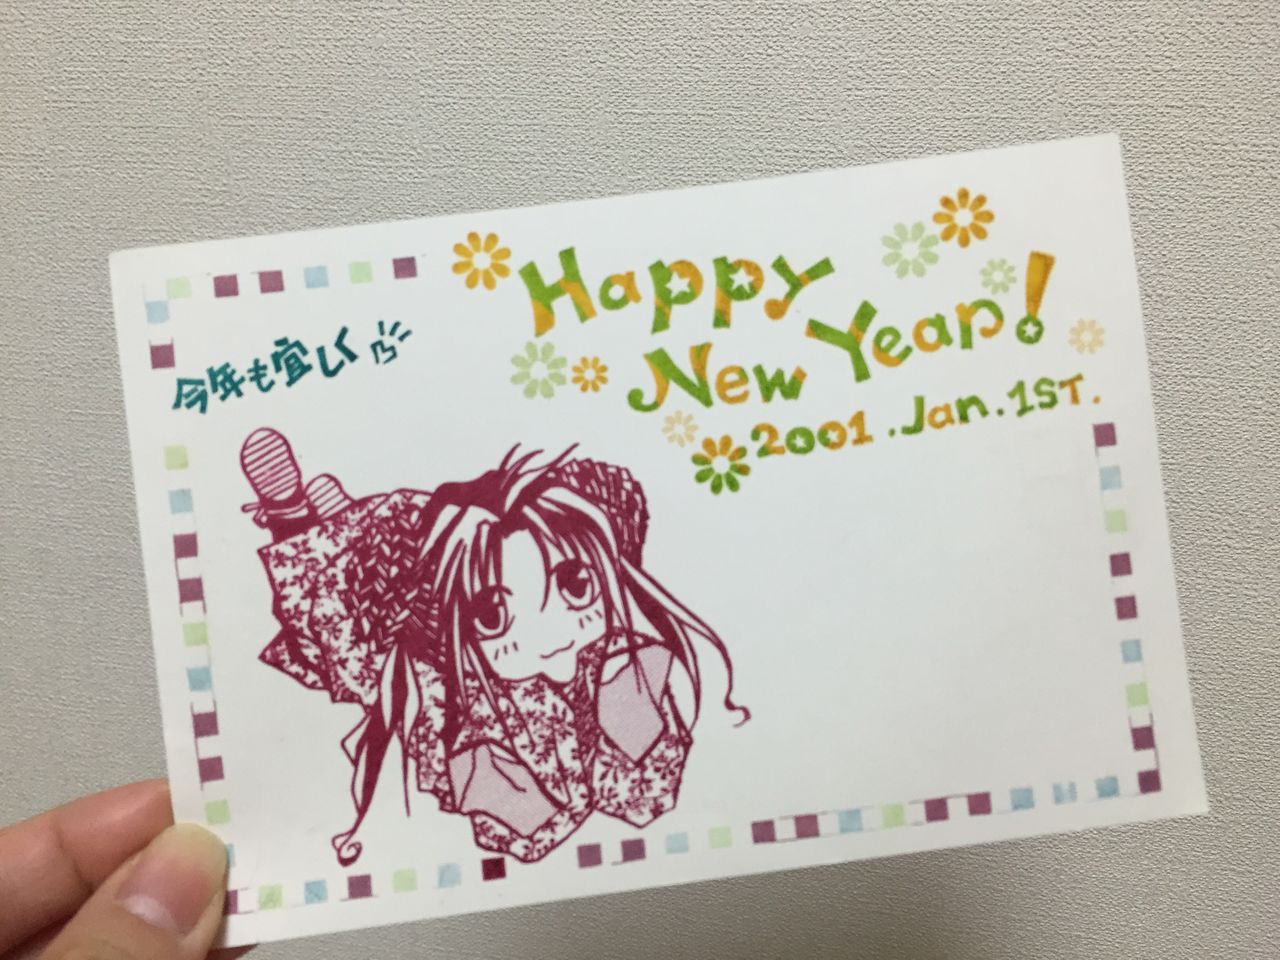 Happy
New Year!
2001.Jan.1ST.
今年も宜しく